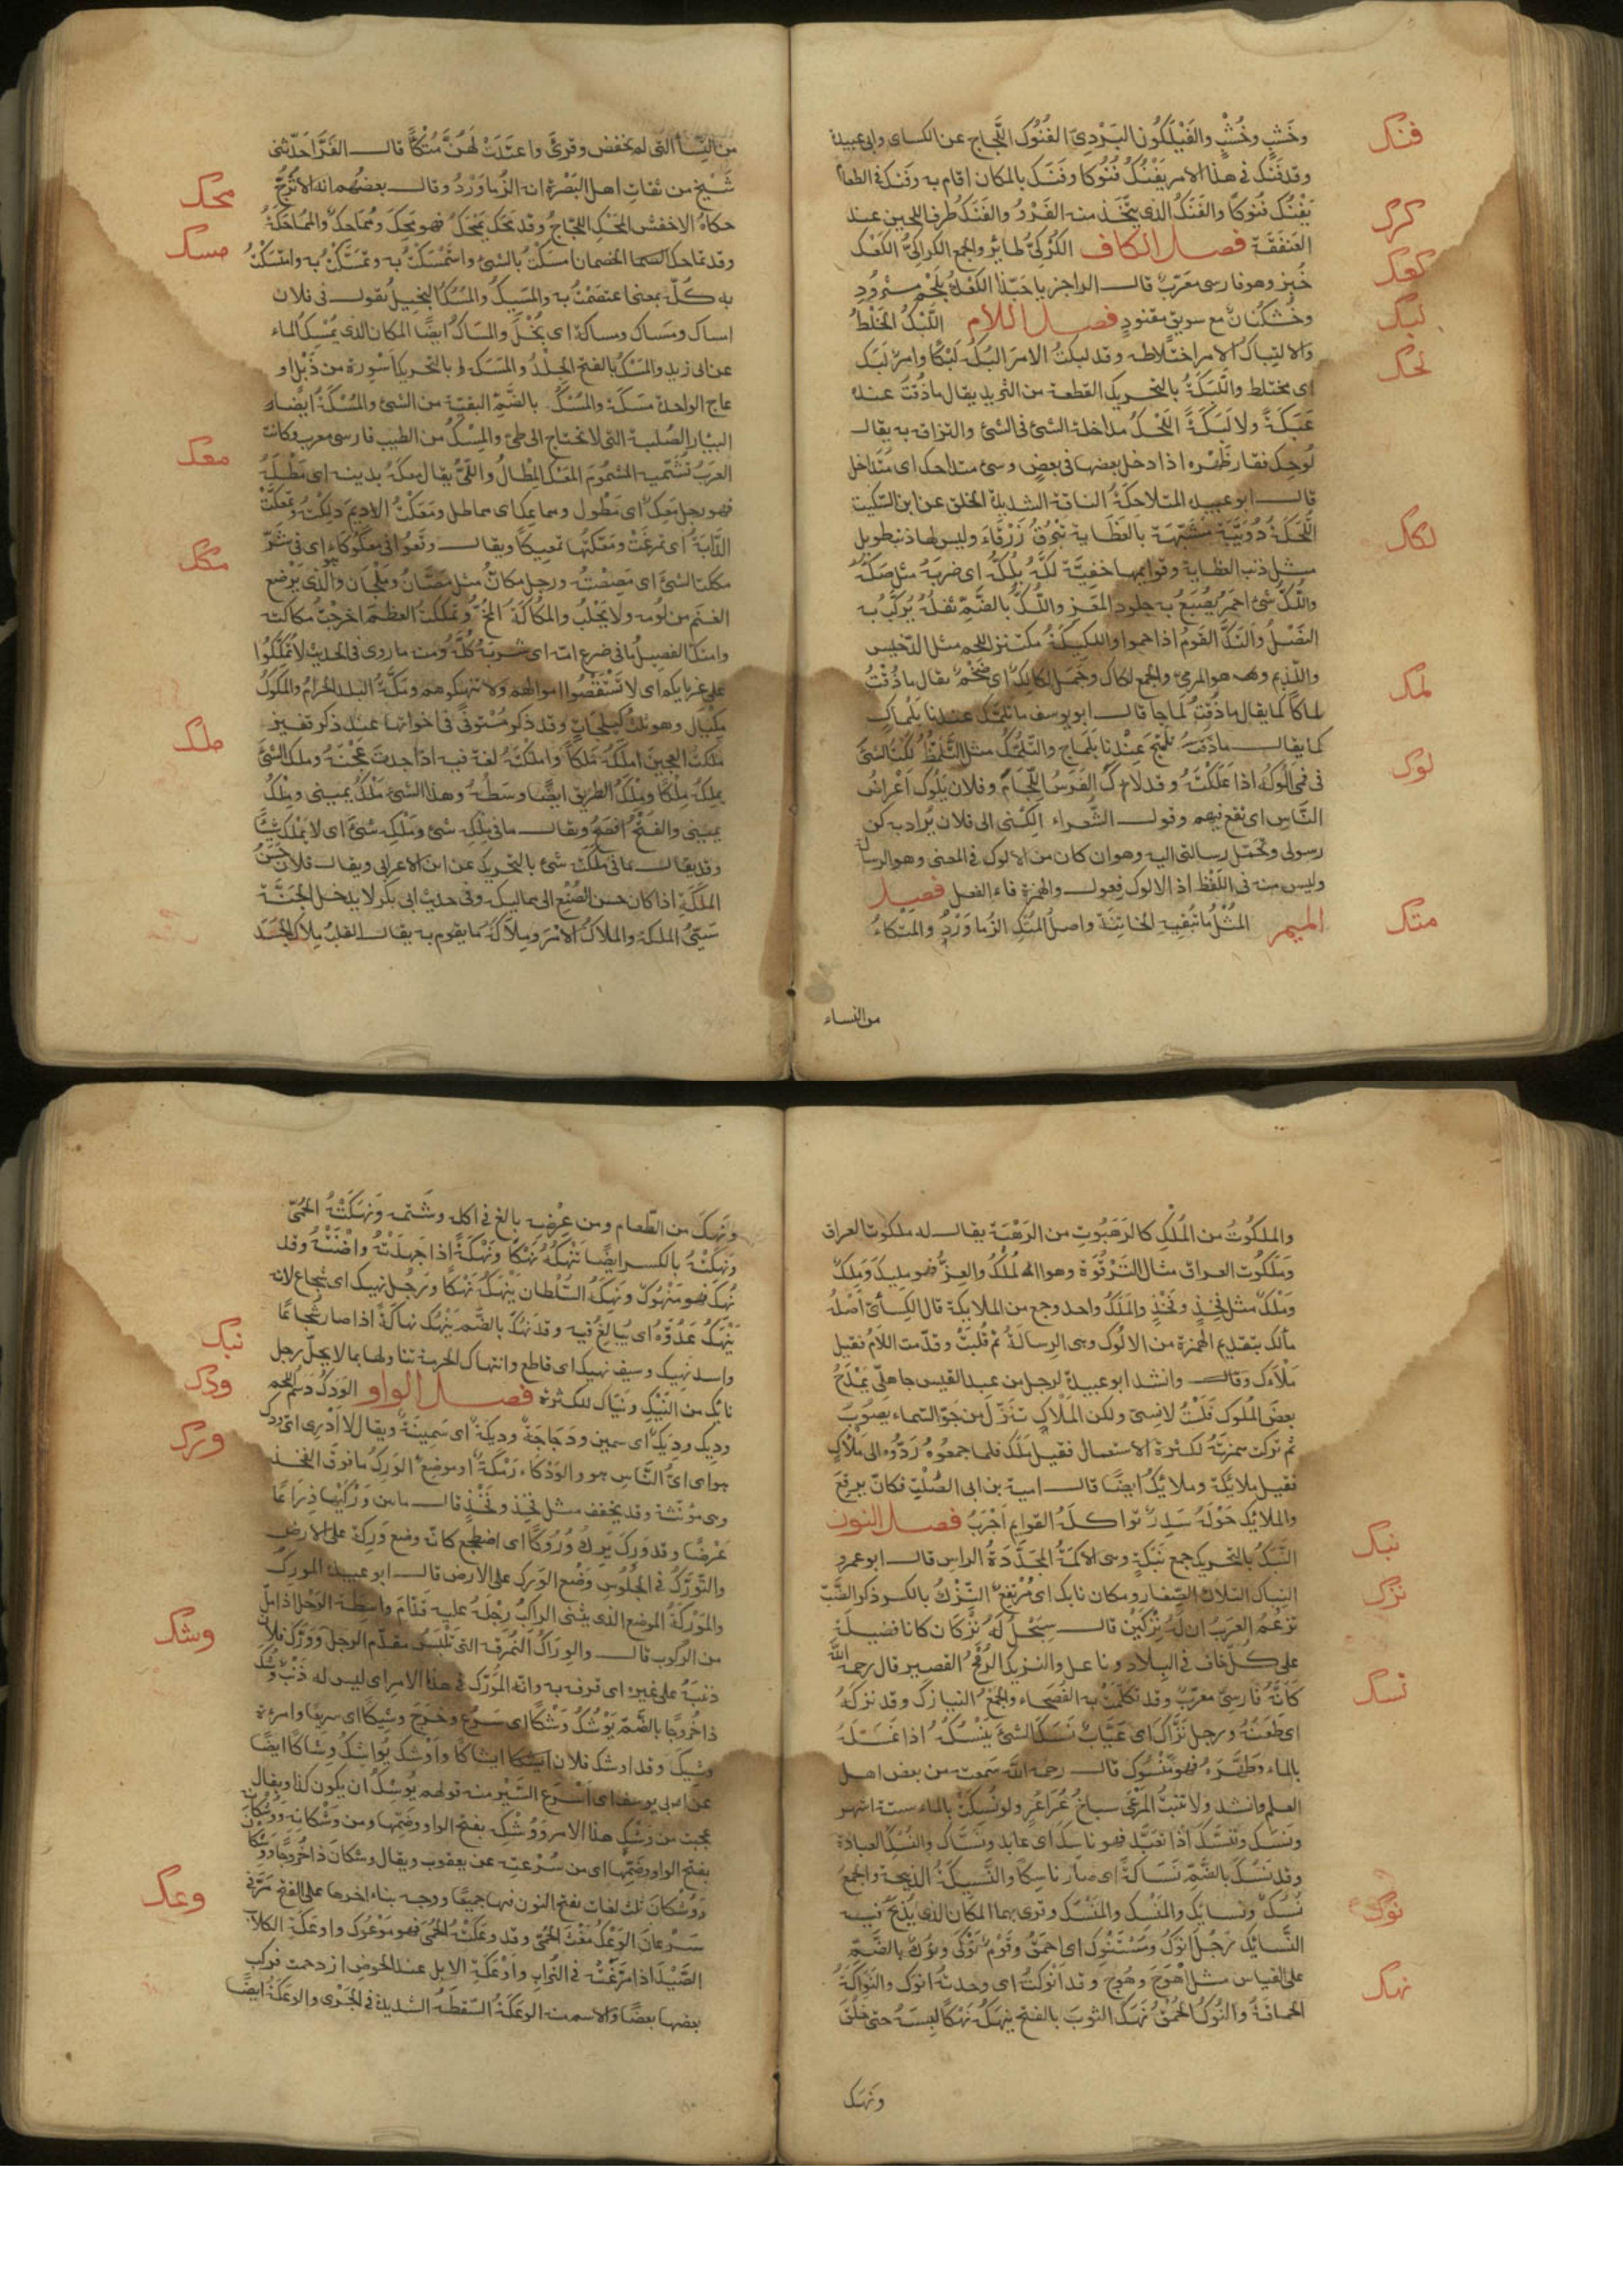 وخَشْبٍ وخُشْبٍ والفَيْلَكُون البَرْدِيّ الفُنُوك اللَّجَاج عن الكساى وابى عبيدة
فنك
وقد فَنَك فى هذا الامر يَفْنُك فُنُوكا وفَنَك بالمكان اقام به وفَنَك فى الطعام
يَفْنُك فُنُوكًا والفَنَك الذى يتّخذ منه الفَرْوُ والفَنَك طرف اللحيين عند
كرك
العَنفَقَة فصل الكاف الكُرْكِىّ طائر والجمع الكراكِىّ الكَعْك
كعك
خُبز وهو فارسى معرّب قال الراجز يا حَبّذا الكَعْك بلَحْمٍ مثرُودِ
وخُشْكَنانٌ مع سويقٍ مقنودِ فصل اللام اللَّبْك الخَلْطُ
لبك
والالتباك الامر اختلاطه وقد لبكتُ الامر البُكُه لَبْكًا وامرٌ لَبِك
لحك
اى مختلط واللَّبَكَةُ بالتحريك القطعة من الثريد يقال ما ذُقْتُ عنده
عَبَكَةً ولا لَبَكَةً اللَّحْك مداخلة الشئ فى الشئ والتزاقه به يقال
لُوحِك فقار ظَهْره اذا دخل بعضها فى بعض وشئ متلاحك اى متداخل
قال ابو عبيد المتلاحكة الناقة الشديدة الخلق عن ابن السكيت
اللُّحَكَةُ دُوَيبّة شبيهة بالعَظَاية تَبْرُق زَرْقَاء وليس لها ذنب طويل
لكك
مثل ذنب العظاية وقوايمها خفيّة لَكَّهُ يَلُكُّه اى ضربه مثل صَكَّه
واللَّكّ شئ احمر يُصْبَغ به جلود المَعْز واللُّكّ بالضّمّ ثفله يُركَّب به
النَّصْلُ والْتَكَّ القومُ اذا ازدحموا واللكيكَةُ مكتنز اللحم مثل الدّخيس
واللّديم وهو المرمىّ والجمع لكاك وجَمَل لكالِك اى ضَخْم يقال ما ذُقْتُ
لمك
لماكًا كما يقال ما ذُقْتُ لَماجا قال ابو يوسف ما تلمّك عندنا بلَمَاك
كما يقال ما تلَمَّج عندنا بلَمَاج والتَّلَمُّك مثل التَّلَمُّظ لُكْتُ الشئ
لوك
فى فمى الُوكُه اذا عَلَكْتَه وقد لاك الفَرَسُ اللِّجَامَ وفلان يَلُوك اَعْراضَ
النَّاسِ اى يَقَعُ فيهم وقول الشُّعراء الِكْنى الى فلان يُراد به كن
رسولى وتحمّل رسالتى اليه وهو ان كان من الالوك فى المعنى وهو الرسالة
وليس منه فى اللَّفْظ اذ الالوك فعول والهمزة فاء الفعل فصل
الميم المُتْك ما تُبْقِيه الخاتِنَة واصل المُتْك الزُّمَاوَرْدُ والمتكاءُ
متك
من النساء
من النِّسَاء التى لم تخفض وقرئ واعتدت لَهُنَّ مُتْكًا قال الفَرّا حَدَّثنى
شَيْخ من ثقات اهل البَصْرة انه الزُّماوَرْدُ وقال بعضُهم انه الاُتْرُجُّ
محك
حكاه الاخفش المَحْك اللَّجَاجُ وقد مَحَك يَمْحَك فهو مَحِك ومُمَاحِك والمُمَاحَكَةُ
مسك
وقد تماحك الخصمان امسكتُ بالشئ واستَمْسَكْتُ به وتمَسَّكْتُ به وامْتَسَكْتُ
به كُلّ بمعنى اعتصَمْتُ به والمَسِيكُ والمُسُك البخِيلُ يقول فى فلان
امساك ومَسَاك ومساكة اى بُخْل والمَسَاك ايضًا المكان الذى يُمْسِك الماء
عن ابى زيد والمَسْك بالفتح الجِلْدُ والمَسَك بالتحريك اَسْورة من ذَبْل او
عاج الواحدة مَسَكَة والمُسْكَة بالضَّمّ البقيّة من الشئ والمُسْكَةُ ايضًا
البِيْار الصُّلبة التى لا تحتاج الى طىّ والمِسْك من الطيب فارسى معرب وكانت
معك
العرب تُسَمّيه المشموم المَعْك المِطَال واللَّىُّ يقال معَكَه بدينه اى مَطَلَه
فهو رجل مَعِك اى مَطُول ومماعِك اى مماطل ومَعَكْتُ الاديم دَلَكْتُه وتمعَّكَتْ
الدَّابّة اى تمرّغَتْ ومَعَّكتُها تَمعيكًا ويقال وقَعُوا فى معكُوكَاءَ اى فى شَرّ
مكك
مكّكت الشئَ اى مَصِصْتُه ورجل مكّانُ مثل مَصَّان ومَلْجَان والذى يَرْضع
الغنَم من لُؤمه ولا يَحْلُب والمُكَاكَة المُخّ وتمكّكتُ العظمَ اخرجتُ مكاكته
وامتكّ الفصيل ما فى ضرع امّه اى شربه كُلَّه ومنه ما روى فى الحديث لا تُمكِّكُوا
على غرمايكم اى لا تَسْتَقْصُوا اموالهم ولا تنهكوهم ومَكَّة البلد الحرام والمكّوك
مِكْيَال وهو ثلث كَيْلَجاتٍ وقد ذكر مُسْتوفًى فى اخواتها عند ذكر قفيز
ملك
مَلَكتُ العجينَ املِكُه مَلْكًا واملكتُه لغة فيه اذا اجدتَ عَجْنَه وملك الشئَ
يملِكه مِلْكًا ومِلْك الطريق ايضًا وسَطُه وهذا الشئ مَلْك يمينى ومِلْك
يمينى والفَتْح افصَح ويقال ما فى مِلْكه شئ ومَلْكِه شئٌ اى لا يَمْلك شيئًا
وقد يقال ما فى مَلَكَته شئ بالتحريك عن ابن الاعرابى ويقال فلان حَسَنُ
المَلَكَةِ اذا كان حسن الصُّنْع الى مماليكه وفى حديث ابى بكر لا يدخل الجنَّة
سَيِّئُ الملكة والملاك الامر ومِلاكُه ما يقوم به يقال القلب مِلاك الجَسَد
والملكُوت من المُلْكِ كالرَهَبُوتِ من الرَهْبَة يقال له ملكوت العراق
ومَلكُوت العراق مثال التَرْقُوَة وهو المُلْكُ والعِزّ فهو مليك ومَلِكٌ
ومَلْك مثل فَخِذٍ وفَخْذٍ والمَلَكُ واحد وجمع من الملايكة قال الكِسَائىّ اَصْلُه
مألك بتقديم الهمزة من الالُوك وهى الرِسالةُ ثم قُلبَتْ وقُدّمت اللام فقيل
مَلْأَك وقال وانشد ابو عبيدة لرجل من عبد القيس جاهلىّ يَمْدَحُ
بعضَ الملوك فَلَسْتَ لانسىّ ولكن لِمَلْأَكٍ تنزّل من جوّ السّماء يَصُوبُ
ثم تركت همزتُه لكثرة الاستعمال فقيل مَلَك فلما جمعوه رَدُّوه الى مَلْأَكٍ
فقيل ملايكة وملايك ايضًا قال امية بن ابى الصَّلْتِ فكانّ بِرقِعَ
والملايك حَوْلَه سَدِرٌ تواكَلَه القوايم اَجْرَبُ فصل النون
النَّبَك بالتحريك جمع نَبَكَةٍ وهى الاكَمَةُ المحَدَّدَةُ الراسِ قال ابو عمرو
نبك
النباك التلال الصّغار ومكان نابك اى مُرْتَفِع النِّزْك بالكسر ذكر الضَّبّ
نزك
تَزْعُم العرَب ان لَهُ نِزْكَينِ قال سِبَحْلٌ لَهُ نِزْكَان كانا فضيلةً
على كُلّ حافٍ فى البلاد وناعل والنَيزك الرُّمْحُ القصير قال رحمه الله
كَأَنَّه فارِسىّ معرّب وقد تكلّمَتْ به الفُصَحاء والجَمْعُ النيازك وقد نزكَه
نسك
اى طَعَنَه ورجل نَزَّاك اى عَيَّابٌ نَسَك الشئَ يَنْسُكه اذا غَسَلَه
بالماء وطَهَّرَه فهو مَنْسُوك قال رحمه الله سمعته من بعض اهل
العلم وانشد ولا تنبتُ المَرْعَى سباخُ عُرَاعِرٍ ولو نُسِكَتْ بالماء ستة اشهر
ونَسَك وتَنَسَّك اذا تعَبَّد فهو ناسِك اى عابد ونُسَّاك والنُّسْك العبادة
وقد نَسُكَ بالضَّمّ نَسَاكةً اى صار ناسِكًا والنَّسِيكَةُ الذبيحة والجمعُ
نُسُكٌ ونَسَايك والمَنْسِك والمَنْسَك وقرئ بهما المكان الذى يُذْبَحُ فيه
نوك
النَّسَايك رَجُلٌ اَنوَكُ ومُسْتَنْوِك اى احمَقُ وقَوْم نَوْكَى ونُوكٌ بالضَّمّ
على القياس مثل اَهْوَجَ وهُوجٍ وقد اَنْوكتُه اى وجدته اَنوَك والنَّوَاكَةُ
نهك
الحَماقةُ والنُّوك الحُمْقُ نَهَك الثوبَ بالفتح يَنْهَكُه نَهْكًا لَبِسَه حتى خَلُقَ
ونَهَك
ونَهَكَ من الطّعام ومن عِرْضِه بالغ فى اكله وشَتمه ونَهَكَتْه الحُمّى
ونَهِكَتْهُ بالكسر ايضًا تَنْهَكُه نَهْكًا ونَهْكَةً اذا جَهَدَتْه واضْنَتْهُ وقد
نُهِكَ فهو مَنْهُوك ونَهِكَهُ السُّلْطان يَنْهَكُه نَهْكًا ورَجُل نهيك اى شجاع لانه
يَنْهَكُ عَدُوَّه اى يُبَالِغُ فيه وقد نَهُكَ بالضَّمّ يَنْهُك نهاكَةً اذا صار شُجَاعًا
واسد نَهِيك وسيف نهيك اى قاطع وانتهاك الحرمة تناولها بما لا يحلّ رجل
نيك
نائِك من النَّيْكِ ونَيَّاك للكثرة فصل الواو الوَدَكُ دَسَم اللحم
ودك
ودِيك وردِيك اى سمين ودَجَاجَة وديكَة اى سَمِينَة ويقال لا اَدْرِى اىّ وَدك
ورك
هو اى اىّ النَّاسِ هو والوَدْكَاء رَمْلَةٌ او موضِع الوَرِكُ ما فوقَ الفَخِذ
وهى مؤنّثة وقد يخفف مثل فَخِذ وفَخْذ قال ما بين وَرِكَيْها ذِرَاعًا
عَرْضًا وقد وَرَكَ يَرِك وُرُوكًا اى اضطجع كانّه وضع وَرِكَه على الارض
والتّوَرُّك فى الجُلُوس وَضْع الوَرِك على الارض قال ابو عبيد المورِك
والمَوْرِكَة الموضع الذى يَثْنِى الراكبُ رِجْلَه عليه قدّام واسطة الرَّحْل اذا ملّ
من الركوب قال والوِرَاك النُّمرقة التى تُلْبَس مقدّم الرحل ووَرَّك فلان
وشك
ذنبَه على غيره اى قرفه به وانّه المُوَرَّك فى هذا الامر اى ليس له ذَنْب وَشُكَ
ذا خُروجًا بالضَّمّ يَوْشُكُ وَشْكًا اى سَرُعَ وخَرَجَ وشِيكًا اى سريعًا وامرءة
وشِيك وقد اوشك فلان ايشاكًا واَوْشَك يُوَاشِك وِشَاكًا ايضًا
عن ابى يوسف اى اَسْرَع السَّيْر منه قولهم يُوشِك ان يكون كذا ويقال
عجبت من وَشْك هذا الامر ووُشْك بفتح الواو وضَمّها ومن وَشْكَانِه ووُشْكَان
بفتح الواو وضَمّها اى من سُرْعَته عن يعقوب ويقال وشكان ذا خُروجًا وَوِشْكا
ووُشْكان ثلث لغات بفتح النون فيها جميعًا ووجه بناء اخرها على الفتح مرّ فى
وعك
سَرْعان الوَعْكُ مَغْثُ الحُمّى وقد وعَكَتْه الحُمَّى فهو مَوْعُوك واوعَكَتِ الكلابُ
الصَّيْدَ اذا مَرَّغَتْه فى التُّراب واَوْعَكَتِ الابل عند الحوض ازدحمت فركب
بعضها بعضًا والاسم منه الوَعْكَةُ السّقطَةُ الشديدة فى الجَرْى والوَعكَة ايضًا